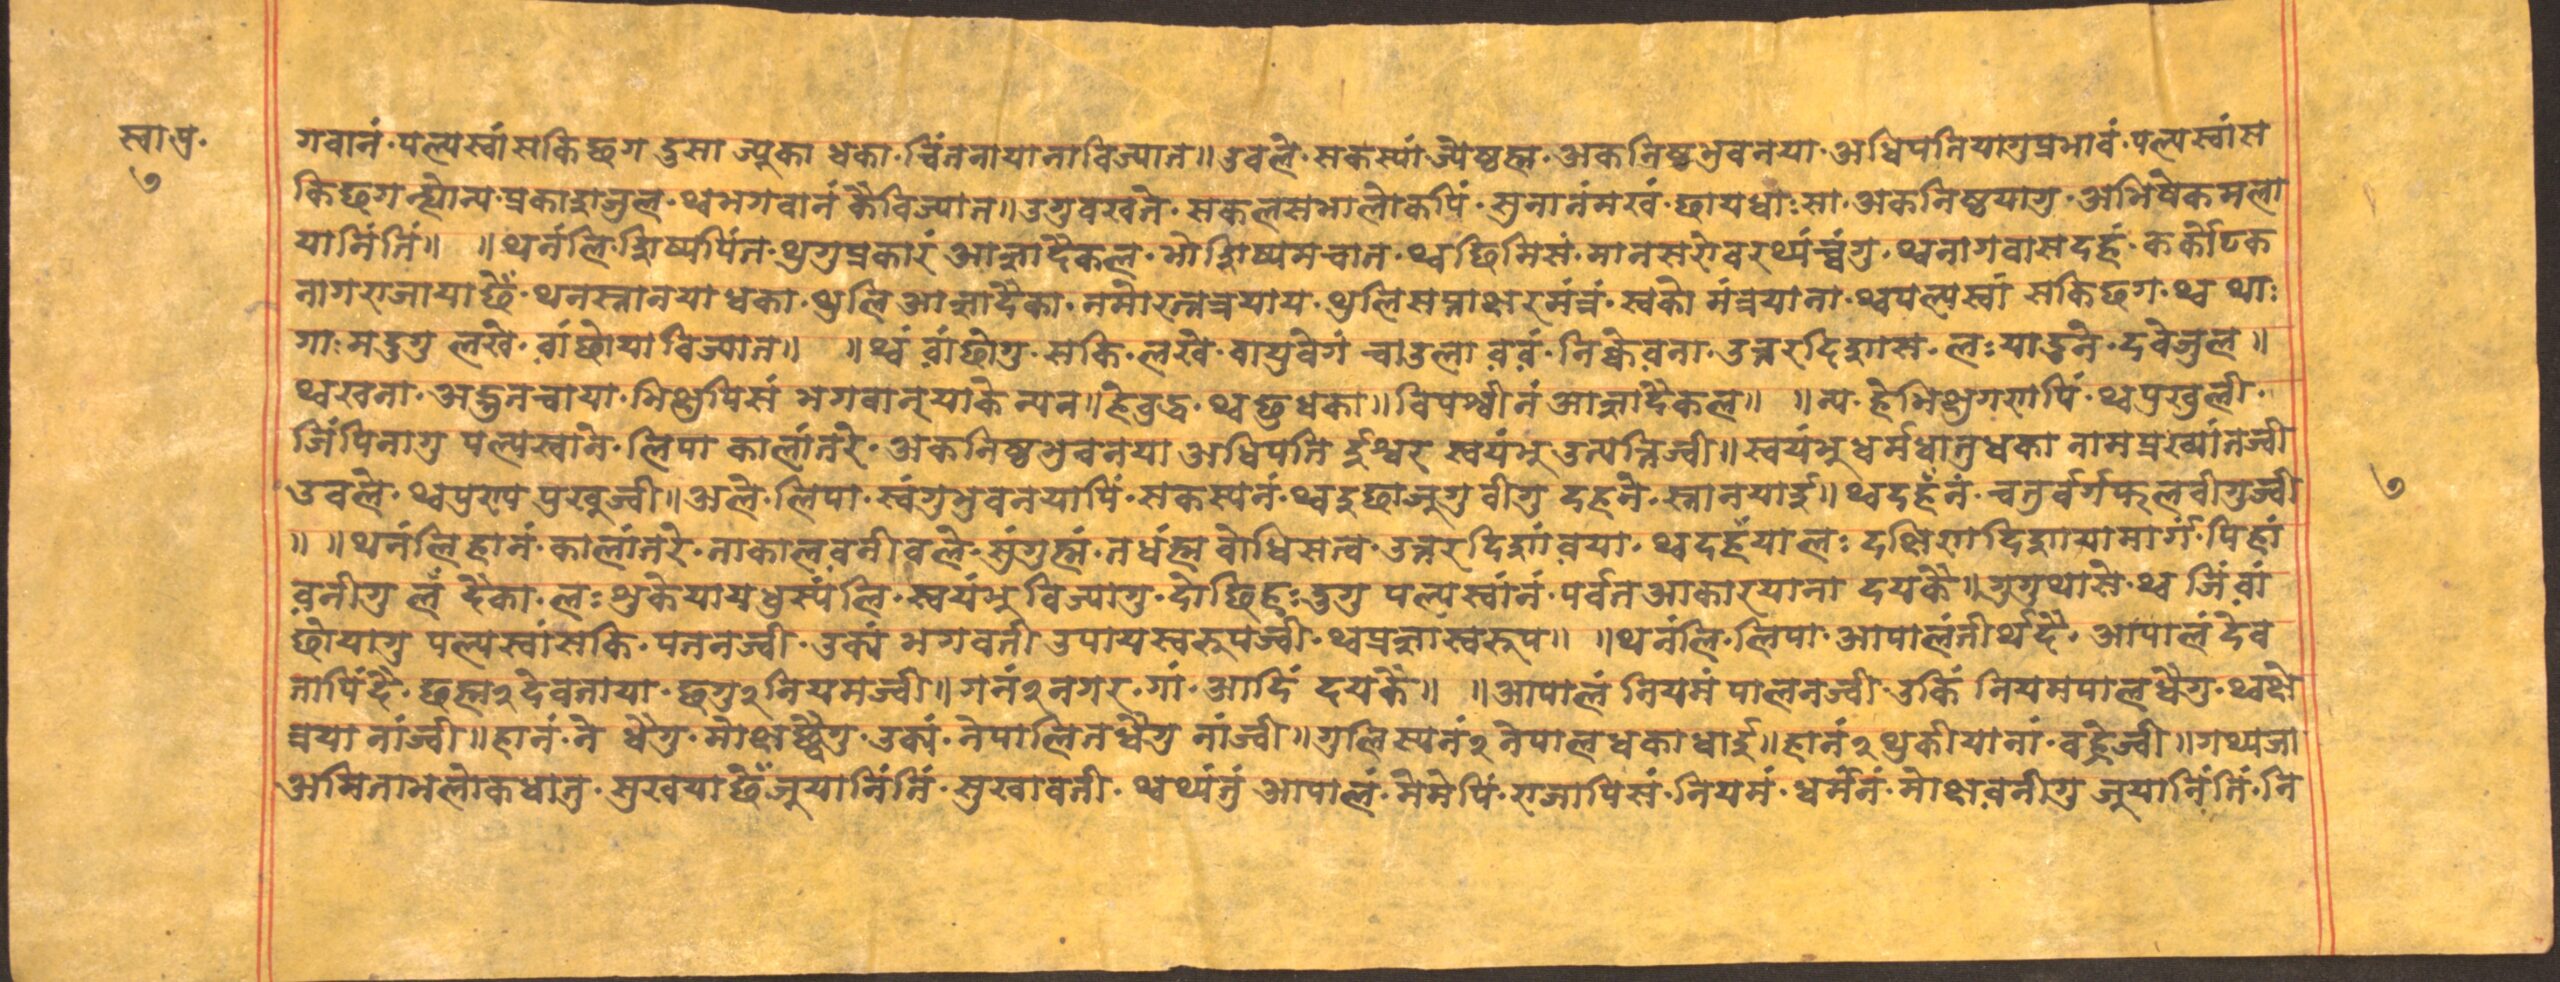 स्वा पु॰
७
गवानं॰ पल्यस्वां सकि छग दुसा ज्यूका धका॰ चिंतनायाना विज्यात॥ उवले॰ सकस्यां॰ ज्येष्ठह्म॰ अकनिष्ठभुवनया॰ अधिपतियागु प्रभावं॰ पल्यस्वां स
किछग न्ह्योन्य॰ प्रकाशजुल॰ थ्व भगवानं कैविज्यात॥ उगु वखते॰ सकल सभालोकपिं॰ सुनानं मखं॰ छायधाःसा॰ अकनिष्ठयागु॰ अभिषेक मला
यानिंतिं॥ ॥थनंलि॰ शिष्यपिंत॰ थुगु प्रकारं आज्ञादैकल॰ भो शिष्यमचात॰ थ्व छिमिसं॰ मानसरोवरथ्यं च्वंगु॰ थ्व नागवासदहं॰ कर्कोटक
नागराजाया छेँ॰ थन स्नानया धका॰ थुलि आज्ञादैका॰ नमोरत्नत्रयाय॰ थुलि सप्ताक्षरमंत्रं॰ स्वको मंत्रयाना॰ थ्व पल्यस्वां सकि छग॰ थ्व थाः
गाः मदुगु लखे॰ वांछोया विज्यात॥ ॥थ्वं वांछोगु॰ सकि॰ लखे॰ वायुवेगं चाउला वंवं॰ निष्फेवना॰ उत्तरदिशास॰ लः यादुने॰ दवेजुल॥
थ्व खना॰ अद्भुतचाया॰ भिक्षुपिसं भगवान्‌याके न्यन॥ हे बुद्ध॰ थ्व छु धका॥ विपश्वीनं आज्ञादैकल॥ ॥न्य॰ हे भिक्षुगणपिं॰ थ्व पुखुली॰
जिं पिनागु पल्यस्वाने॰ लिपा कालांतरे॰ अकनिष्ठभुवनया अधिपति ईश्वर स्वयंभु उत्पत्तिज्वी॥ स्वयंभु धर्मधातु धका नाम प्रख्यांतज्वी
उवले॰ थ्व पुण्य पुखुज्वी॥ अले॰ लिपा॰ स्वंगु भुवनयापिं॰ सकस्यनं॰ थ्व इछाजुगु वीगु दहने॰ स्नानयाई॥ थ्व दहँनं॰ चतुर्वर्गफलवीगुज्वी
॥ ॥थनंलि हानं॰ कालांतरे॰ नाकालवनीवले॰ सुंगुह्मं॰ तधंह्म वोधिसत्व॰ उत्तरदिशां वया॰ थ्व दहँया लः दक्षिणदिशायामार्गं॰ पिहां
वनीगु लं दैका॰ लः थुकेयाय धुस्यंलि॰ स्वयंभु विज्यागु॰ दोछिहः दुगु पल्यस्वांनं॰ पर्वत आकारयाना दयकै॥ गुगु थासे॰ थ्व जिं वां
छोयागु पल्यस्वां सकि॰ पतनज्वी॰ उक्यं भगवती उपायस्वरुपज्वी॰ थ्व प्रज्ञास्वरुप॥ ॥थनंलि॰ लिपा॰ आपालंतीर्थदै॰ आपालं देव
तापिंदै॰ छह्म२ देवताया॰ छगु२ नियमज्वी॥ गनं२ नगर॰ गां॰ आदिं दयकै॥ ॥आपालं नियमं पालनज्वी उकिं नियमपाल धैगु॰ थ्व क्षे
त्रया नांज्वी॥ हानं॰ ने धैगु॰ मोक्ष धैगु॰ उक्यं॰ नेपालितधैगु नांज्वी॥ गुलिस्यनं२ नेपाल धका धाई॥ हानं२ थुकीयानां॰ वज्रेज्वी॥ गथ्यजा
अमिताभलोकधातु॰ सुखया छेँजुयानिंतिं॰ सुखावती॰ थ्वथ्यंतुं आपालं॰ मेमेपिं॰ राजापिसं॰ नियमं॰ धर्मनं॰ मोक्षवनीगु जुयानिंतिं॰ नि
७